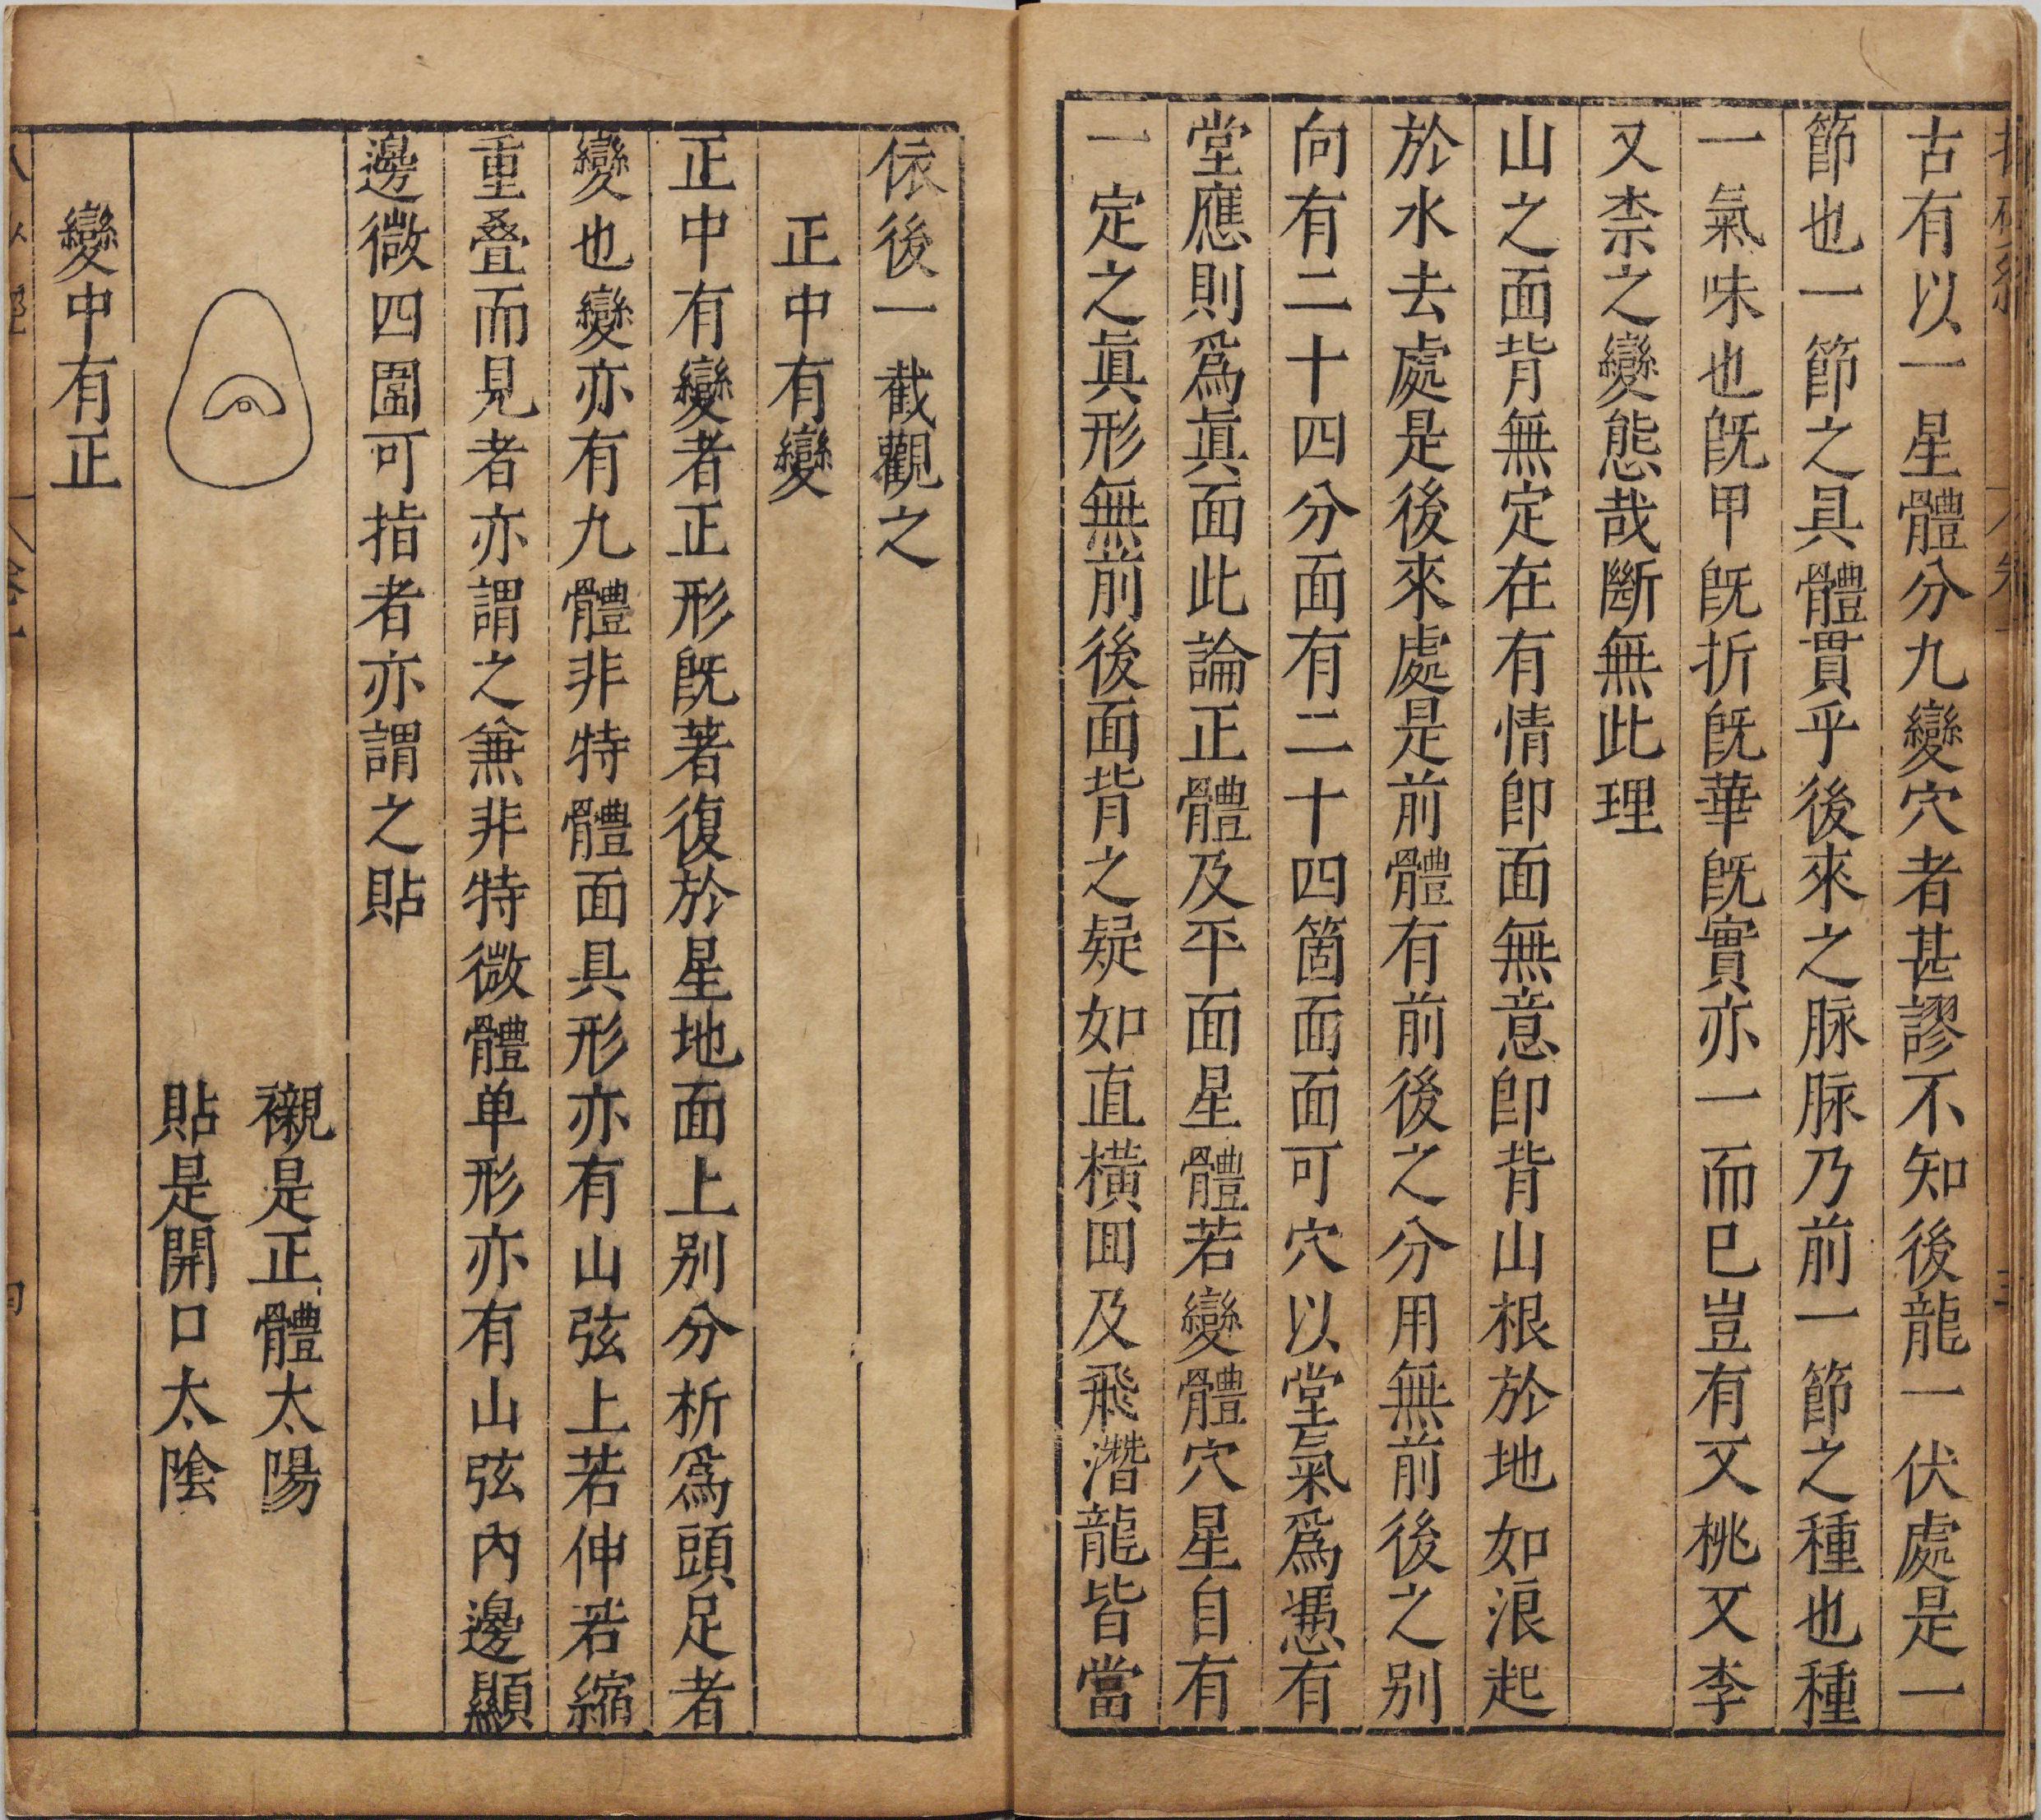 古有以一星體分九變穴者甚謬不知後龍一伏處是一
節也一節之具體貫乎後來之脉脉乃前一節之種也種
一氣味也旣甲旣折旣華旣實亦一而已豈有又桃又李
又柰之變態哉斷無此理
山之面背無定在有情卽面無意卽背山根於地如浪起
於水去處是後來處是前體有前後之分用無前後之别
向有二十四分面有二十四箇面面可穴以堂氣爲慿有
堂應則爲眞面此論正體及平面星體若變體穴星自有
一定之眞形無前後面背之疑如直橫囬及飛潛龍皆當
依後一截觀之
正中有變
正中有變者正形旣著復於星地面上别分析爲頭足者
變也變亦有九體非特體面具形亦有山弦上若伸若縮
重疊而見者亦謂之兼非特微體单形亦有山弦內邊顯
邊微四圍可指者亦謂之貼
襯是正體太陽
貼是開口太陰
變中有正